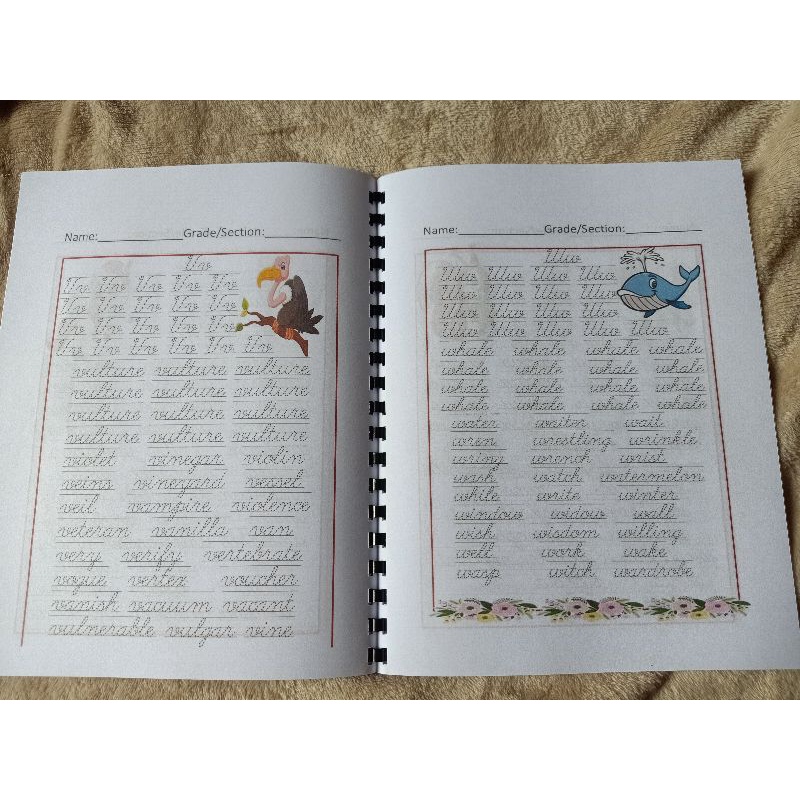 Name:______________Grade/Section:____________
Vv
Vv Vv Vv Vv Vv
Vv Vv Vv Vv Vv
Vv Vv Vv Vv Vv
Vv Vv Vv Vv Vv Vv
vulture vulture vulture
vulture vulture vulture
vulture vulture vulture
vulture vulture vulture
violet vinegar violin
veins vineyard veasel
veil vampire violence
veteran vanilla van
very verify vertebrate
vogue vertex voucher
vanish vacuum vacant
vulnerable vulgar vine
Name:______________Grade/Section:____________
Ww
Ww Ww Ww Ww
Ww Ww Ww Ww
Ww Ww Ww Ww
Ww Ww Ww Ww Ww
whale whale whale whale
whale whale whale whale
whale whale whale whale
whale whale whale whale
water waiter wait
wren wrestling wrinkle
wring wrench wrist
wash watch watermelon
while write winter
window widow wall
wish wisdom willing
well work wake
wasp witch wardrobe